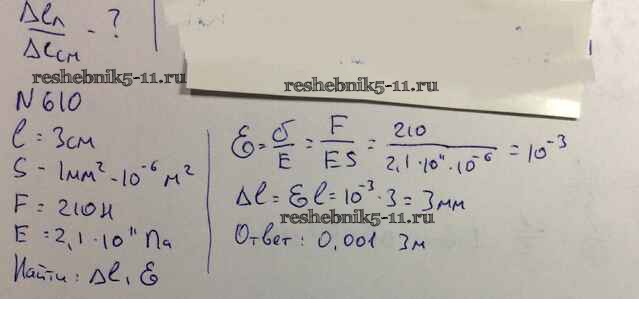 Δlл / Δlсм - ?
reshebnik5-11.ru
reshebnik5-11.ru
N 610
l = 3см
S - 1мм² - 10⁻⁶ м²
F = 210Н
E = 2,1 · 10¹¹ Па
Найти: Δl, Ɛ
Ɛ = σ/E = F/ES = 210/(2,1 · 10¹¹ · 10⁻⁶) = 10⁻³
Δl = Ɛl = 10⁻³ · 3 = 3мм
reshebnik5-11.ru
Ответ: 0,001 3м